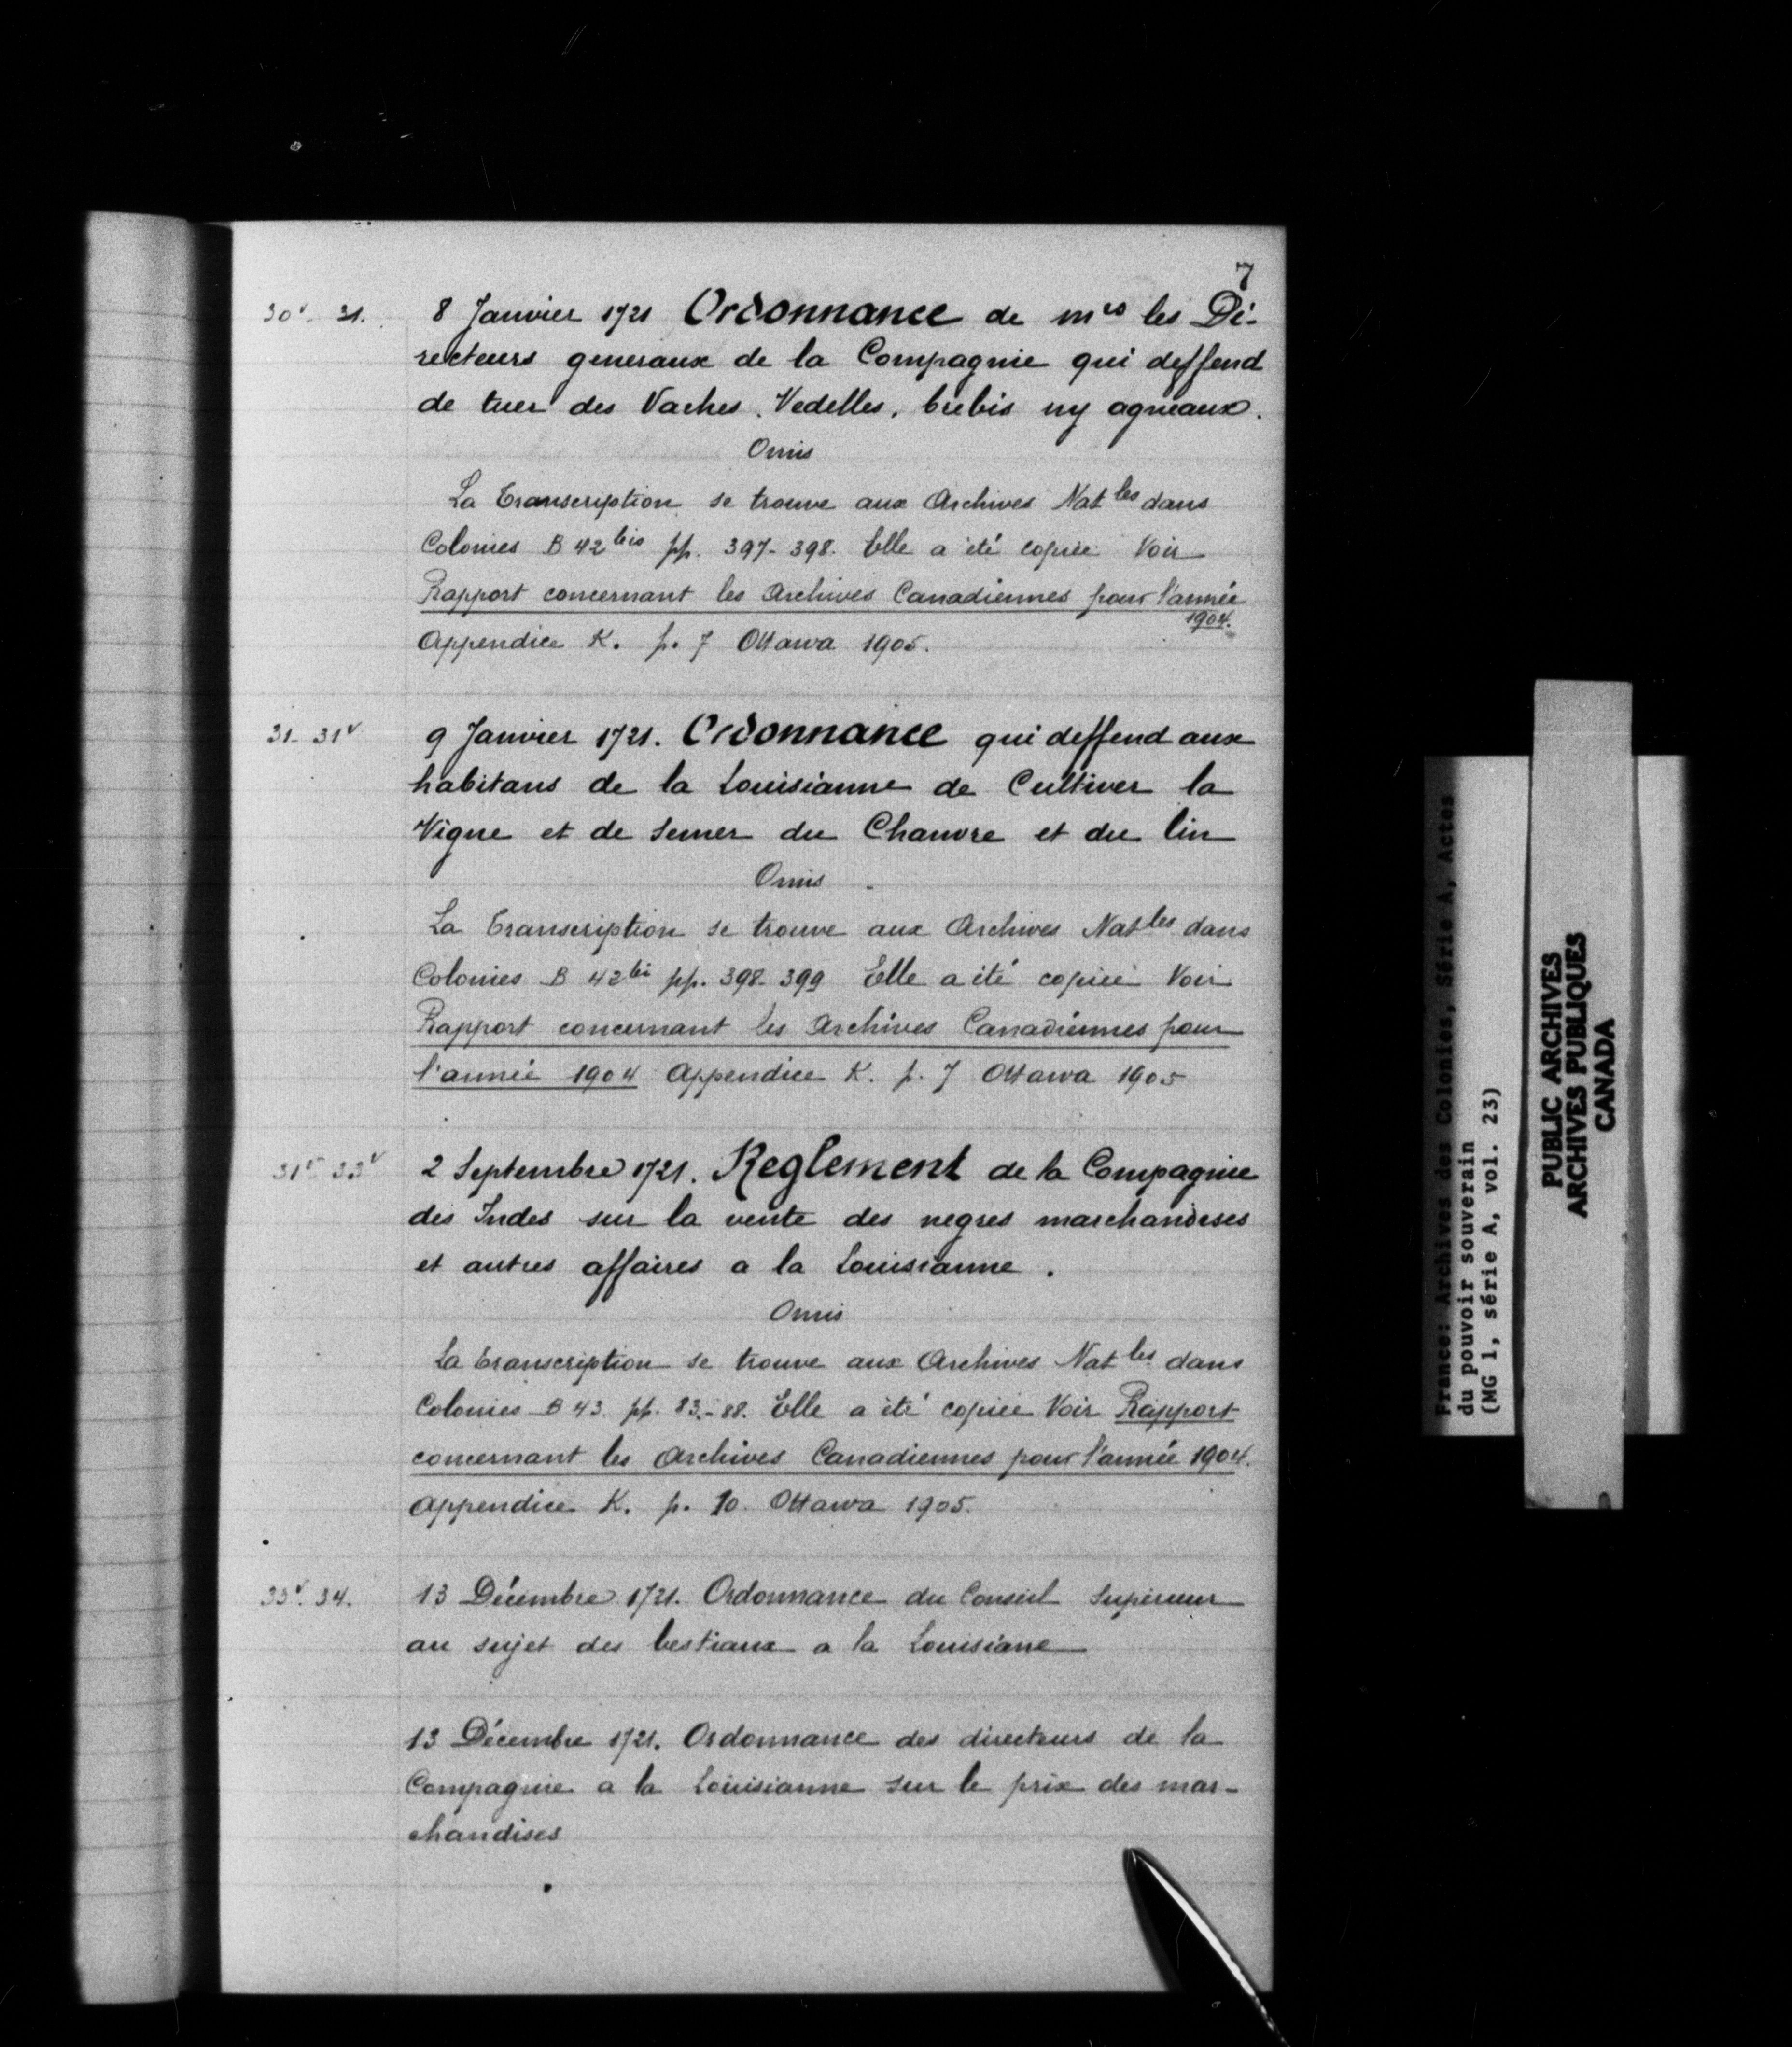 7
30v - 31. 8 Janvier 1721 Ordonnance de mrs les Di-
recteurs generaux de la Compagnie qui deffend
de tuer des Vaches. Vedelles, brebis ny agneaux.
Omis
La Transcription se trouve aux Archives Natles dans
Colonies B 42 bis pp. 397-398. Elle a été copiée Voir
Rapport concernant les Archives Canadiennes pour l'année
1904.
Appendice K. p. 7 Ottawa 1905.
31 - 31v 9 Janvier 1721. Ordonnance qui deffend aux
habitans de la Louisianne de Cultiver la
Vigne et de semer du Chanvre et du lin
Omis
La Transcription se trouve aux Archives Natles dans
Colonies B 42 bis pp. 398-399 Elle a été copiée Voir
Rapport concernant les Archives Canadiennes pour
l'année 1904 Appendice K. p. 7 Ottawa 1905
31v - 33v 2 Septembre 1721. Reglement de la Compagnie
des Indes sur la vente des negres marchandises
et autres affaires a la Louisianne.
Omis
La Transcription se trouve aux Archives Natles dans
Colonies B 43. pp. 83.-88. Elle a été copiée Voir Rapport
concernant les Archives Canadiennes pour l'année 1904.
Appendice K. p. 10. Ottawa 1905.
33v. 34. 13 Décembre 1721. Ordonnance du Conseil Superieur
au sujet des bestiaux a la Louisiane
13 Décembre 1721. Ordonnance des directeurs de la
Compagnie a la Louisianne sur le prix des mar-
chandises
France: Archives des Colonies, Série A, Actes
du pouvoir souverain
(MG 1, série A, vol. 23)
PUBLIC ARCHIVES
ARCHIVES PUBLIQUES
CANADA